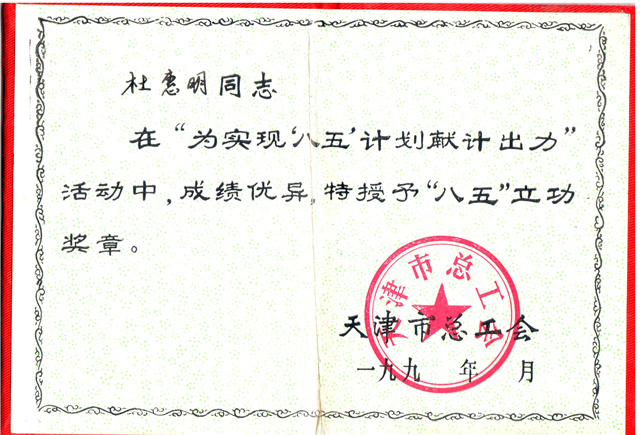 杜惠明同志
在“为实现‘八五’计划献计出力”
活动中,成绩优异,特授予“八五”立功
奖章。
天津市总工会
天津市总工会
一九九 年 月